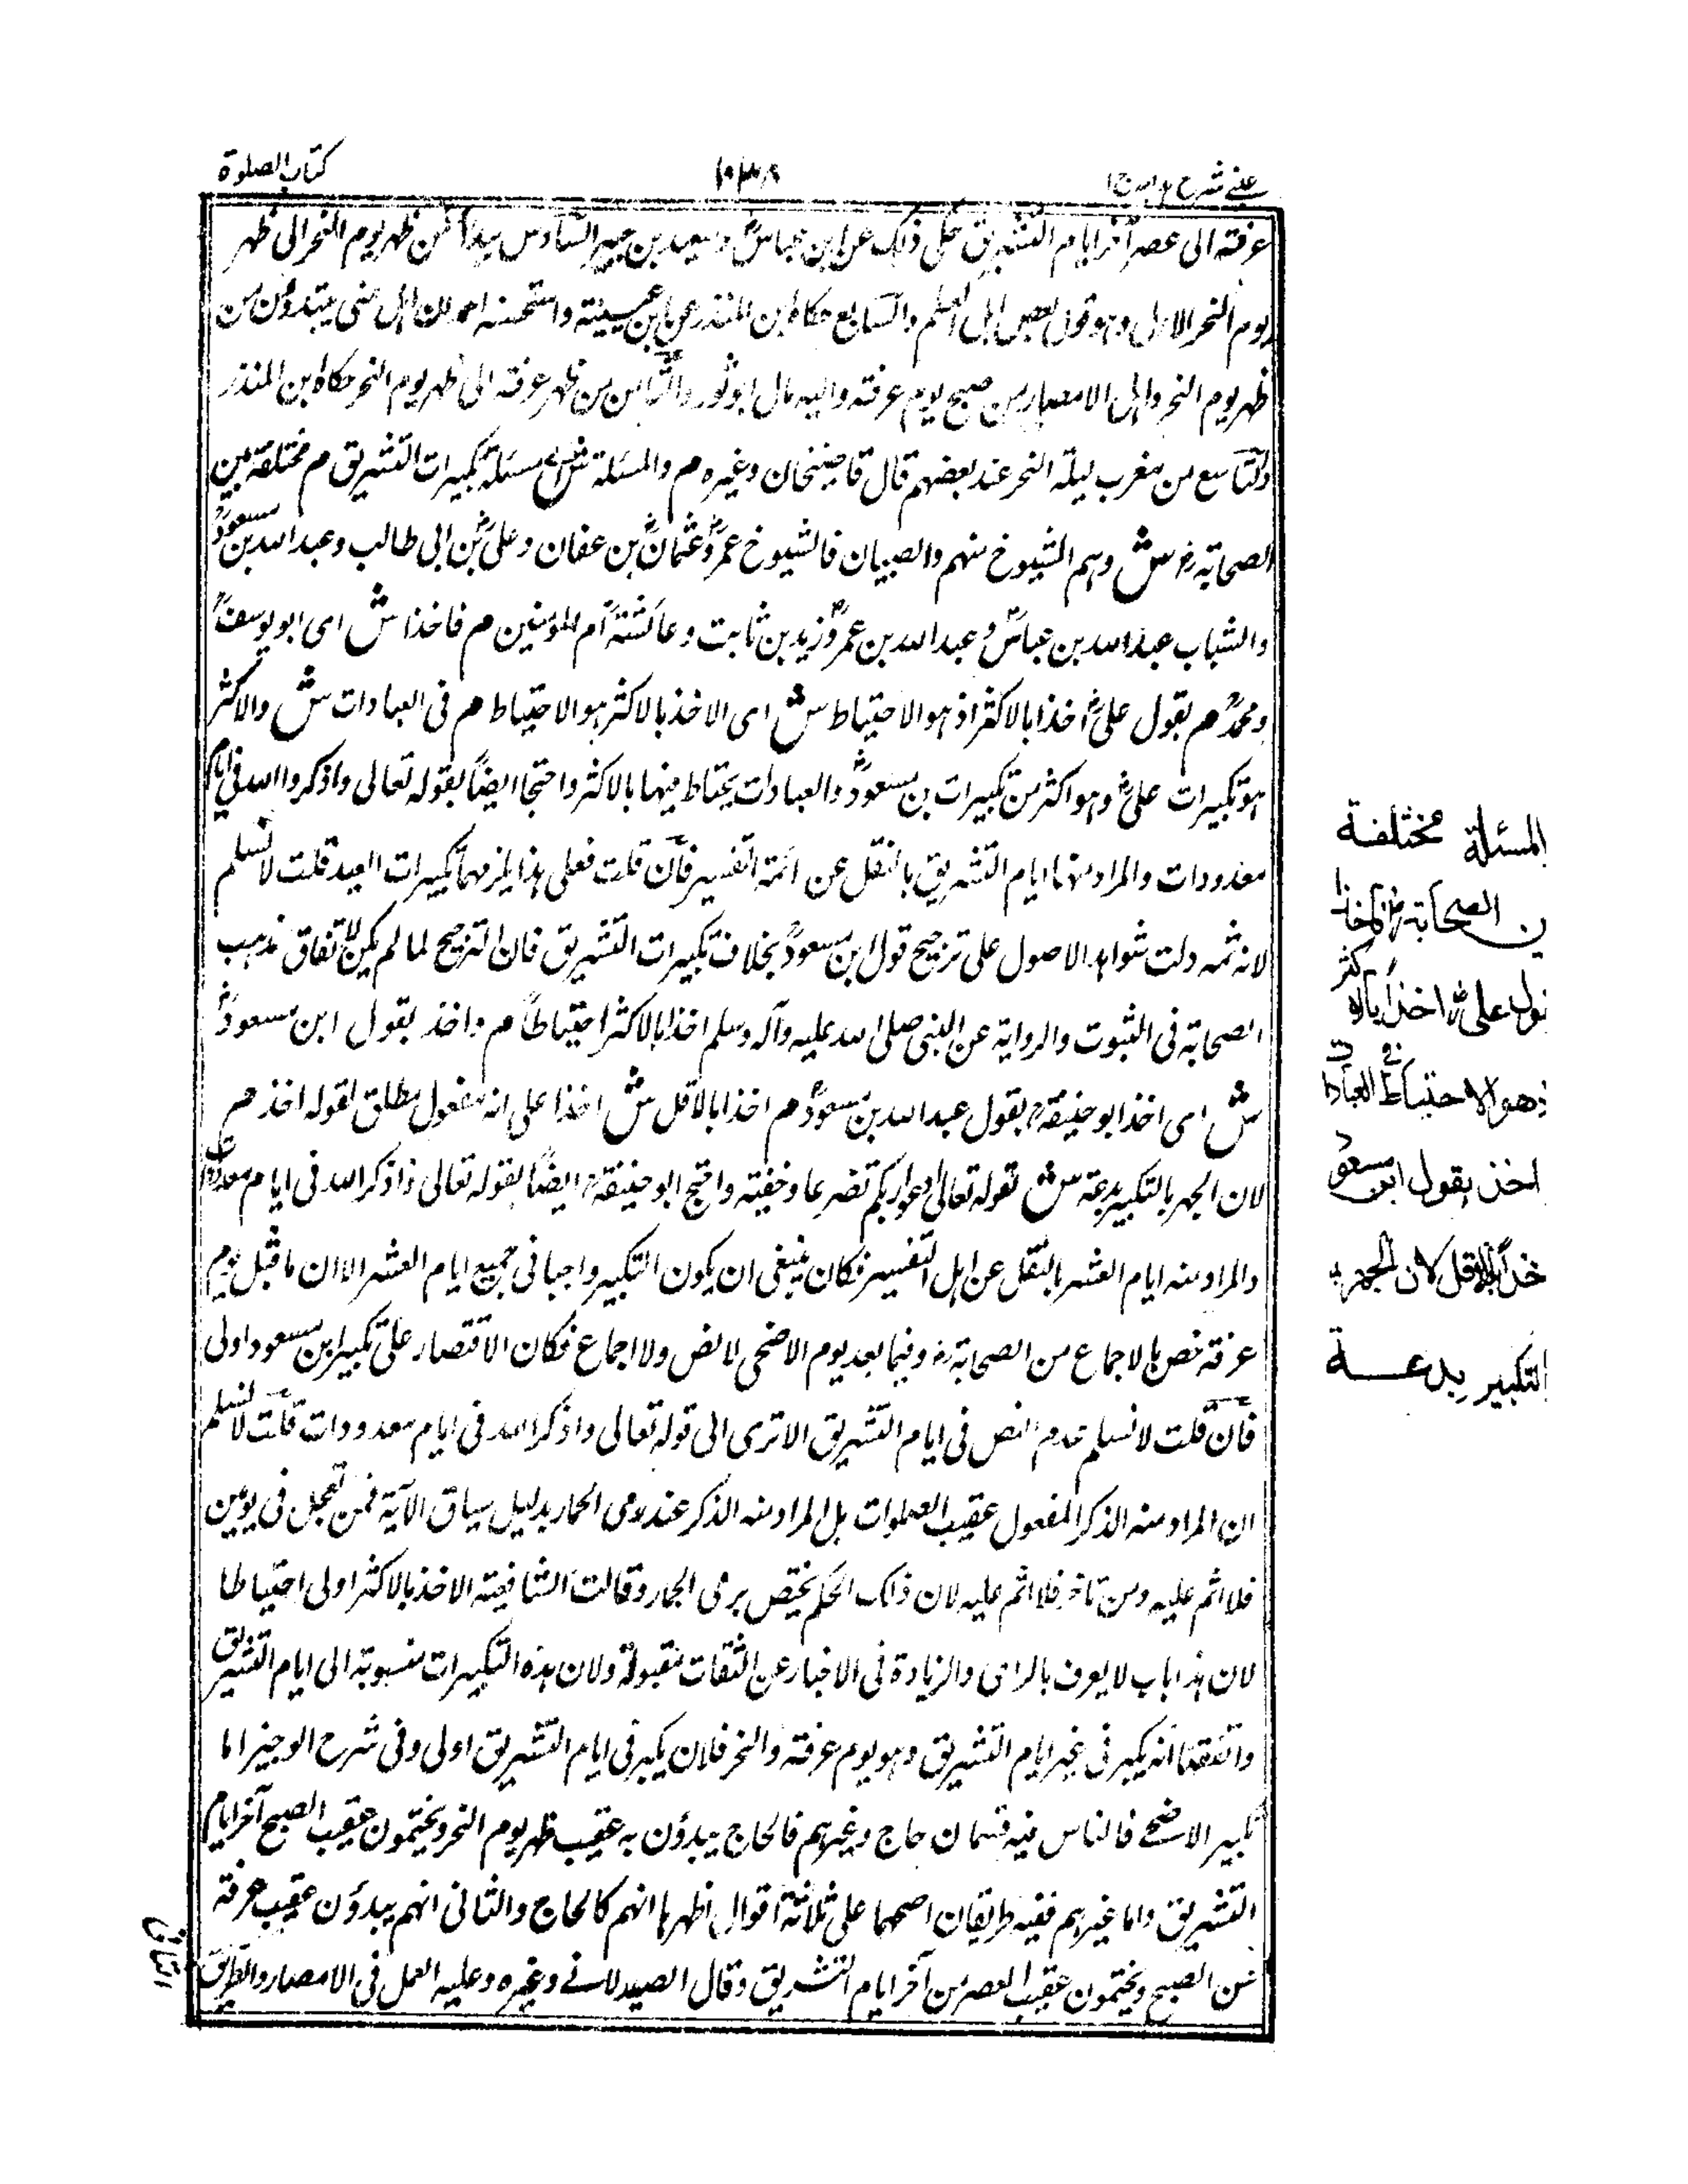 عینی شرح ہدایہ ج ۱
۱۰۳۸
کتاب الصلوة
عرفة الى عصر آخر ايام التشريق حكى ذلك عن ابن عباسؓ وسعيد بن جبير السادس يبدأ من ظهر يوم النحر الى ظهر
يوم النحر الاول وهو قول بعض اهل العلم والسابع حكاه ابن المنذر عن ابن عيينة واستحسنه احمد ان اهل منى يبتدؤن من
ظهر يوم النحر واهل الامصار من صبح يوم عرفة واليه مال ابو ثور والثامن من ظهر عرفة الى ظهر يوم النحر حكاه ابن المنذر
والتاسع من مغرب ليلة النحر عند بعضهم قال قاضيخان وغيره م والمسئلة ش اى مسئلة تكبيرات التشريق م مختلفة بين
الصحابةؓ ش وهم الشيوخ منهم والصبيان فالشيوخ عمرؓ وعثمانؓ بن عفان وعلىؓ بن ابى طالب وعبد الله بن مسعودؓ
والشباب عبد الله بن عباسؓ وعبد الله بن عمرؓ وزيد بن ثابت وعائشة ام المؤمنين م فاخذا ش اى ابو يوسفؒ
ومحمدؒ م بقول علىؓ اخذا بالاكثر اذ هو الاحتياط ش اى الاخذ بالاكثر هو الاحتياط م فى العبادات ش والاكثر
هو تكبيرات علىؓ وهو اكثر من تكبيرات بن مسعودؓ والعبادات يحتاط فيها بالاكثر واحتجا ايضاً بقوله تعالى واذكروا الله فى ايام
معدودات والمراد منها ايام التشريق بالنقل عن ائمة التفسير فان قلت فعلى هذا يلزمهما تكبيرات العيد قلت لا نسلم
لانه ثمه دلت شواهد الاصول على ترجيح قول ابن مسعودؓ بخلاف تكبيرات التشريق فان الترجيح لما لم يكن لاتفاق مذهب
الصحابة فى الثبوت والرواية عن النبى صلى الله عليه وآله وسلم اخذا بالاكثر احتياطاً م واخذ بقول ابن مسعودؓ
ش اى اخذ ابو حنيفةؒ بقول عبد الله بن مسعودؓ م اخذا بالاقل ش اخذا على انه مفعول مطلق لقوله اخذ م
لان الجهر بالتكبير بدعة ش لقوله تعالى ادعوا ربكم تضرعا وخفية واحتج ابو حنيفةؒ ايضاً بقوله تعالى واذكر الله فى ايام معدودات
والمراد منه ايام العشر بالنقل عن اهل التفسير فكان ينبغى ان يكون التكبير واجبا فى جميع ايام العشر الا ان ما قبل يوم
عرفة خص بالاجماع من الصحابةؓ وفيما بعد يوم الاضحى لا نص ولا اجماع فكان الاقتصار على تكبير ابن مسعود اولى
فان قلت لا نسلم عدم النص فى ايام التشريق الا ترى الى قوله تعالى واذكر الله فى ايام معدودات قلت لا نسلم
ان المراد منه الذكر المفعول عقيب الصلوات بل المراد منه الذكر عند رمى الجمار بدليل سياق الآية فمن تعجل فى يومين
فلا اثم عليه ومن تاخر فلا اثم عليه لان ذلك الحكم يختص برمى الجمار وقالت الشافعية الاخذ بالاكثر اولى احتياطا
لان هذا باب لا يعرف بالراى والزيادة فى الاخبار عن الثقات مقبولة ولان هذه التكبيرات منسوبة الى ايام التشريق
واتفقنا انه يكبر فى غير ايام التشريق وهو يوم عرفة والنحر فلان يكبر فى ايام التشريق اولى وفى شرح الوجيز اما
تكبير الاضحى فالناس فيه قسمان حاج وغيرهم فالحاج يبدؤن به عقيب ظهر يوم النحر ويختمون عقيب الصبح آخر ايام
التشريق واما غيرهم ففيه طريقان اصحهما على ثلاثة اقوال اظهرها انهم كالحاج والثانى انهم يبدؤن عقيب عرفة
من الصبح ويختمون عقيب العصر من آخر ايام التشريق وقال الصيدلانى وغيره وعليه العمل فى الامصار والطريق
الثانى
المسئلة مختلفة
ين الصحابةؓ فاخذا
نول علىؓ اخذا بالاكثر
ذهو الاحتياط فى العبادات
اخذ بقول ابن مسعود
خذاً بالاقل لان الجهر
التكبير بدعة